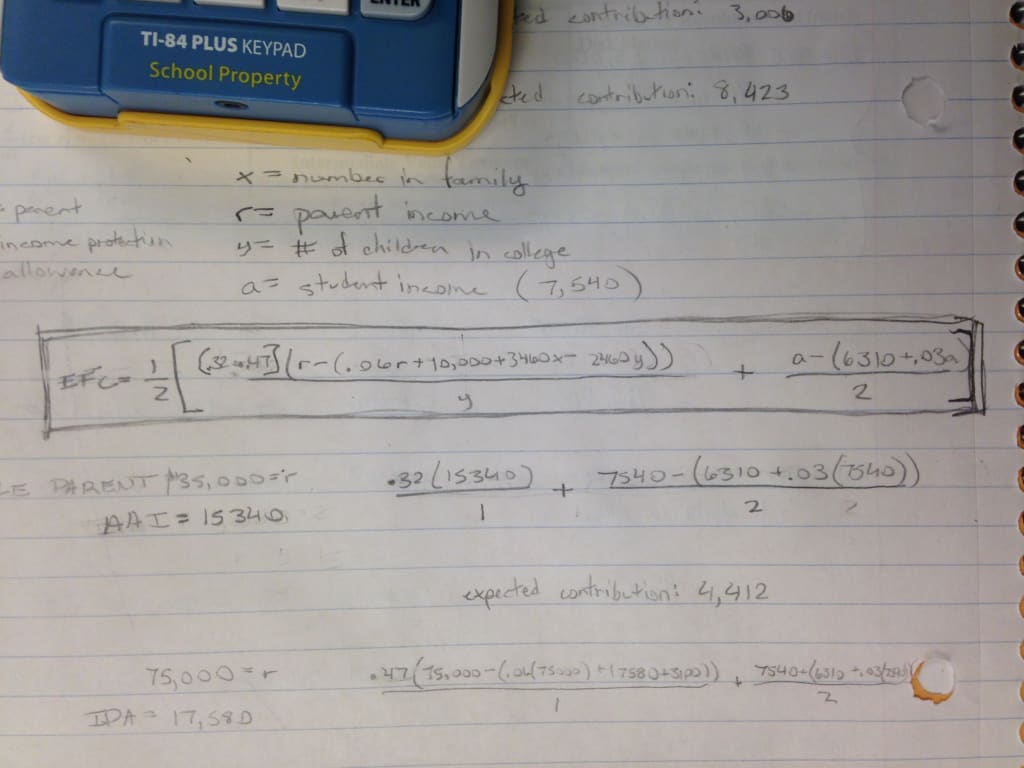 ENTER
TI-84 PLUS KEYPAD
School Property
ted contribution: 3,006
cted contribution: 8,423
x = number in family
= parent r = parent income
income protection y = # of children in college
allowence a = student income (7,540)
EFC = 1/2 [ [.32 .47](r-(.06r+10,000+3460x- 2460y)) / y + a-(6310+.03a) / 2 ]
LE PARENT $35,000=r .32(15340) / 1 + 7540-(6310+.03(7540)) / 2
AAI = 15340
expected contribution: 4,412
75,000 = r .47(75,000-(.06(75000)+17580+3100)) / 1 + 7540-(6310+.03(7540)) / 2
IPA = 17,580